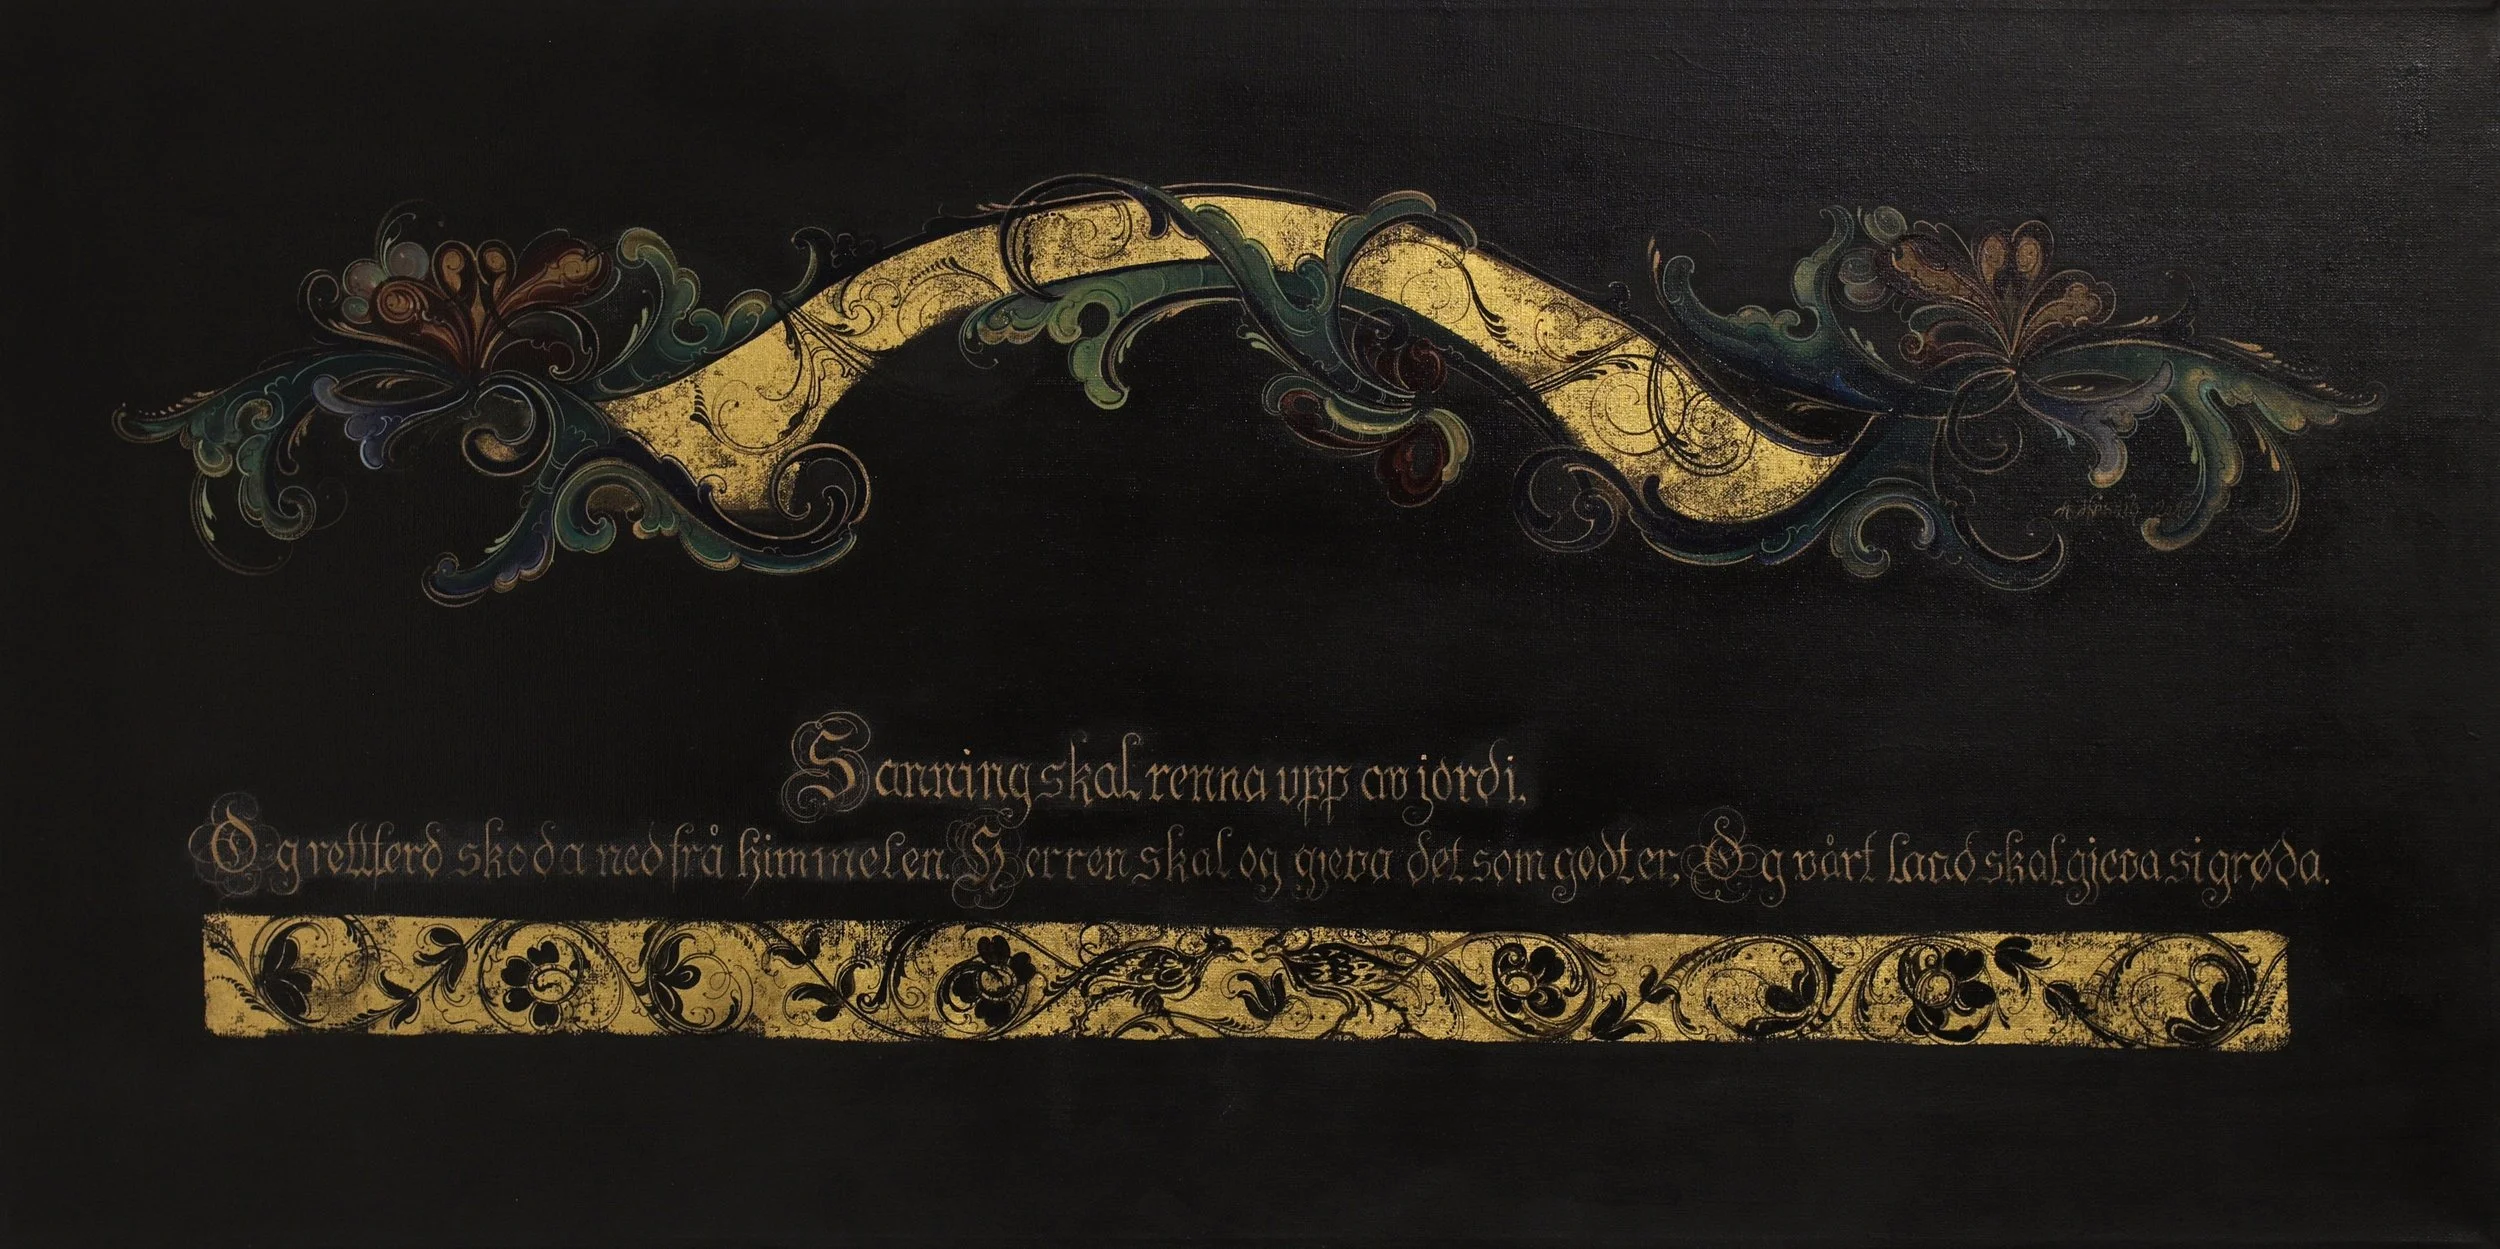 Sanning skal renna upp av jordi.
Og rettferd skoda ned frå himmelen. Herren skal og gjeva det som godt er, Og vårt land skal gjeva si grøda.